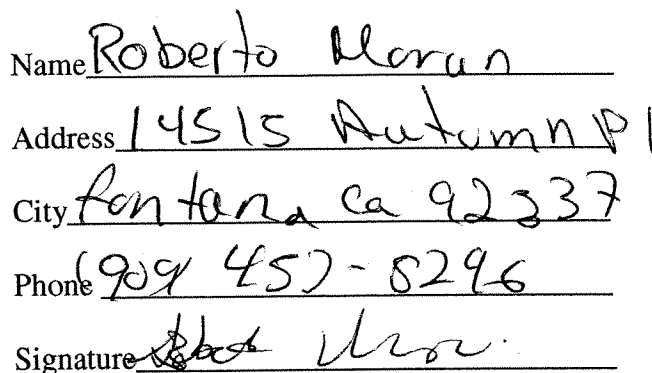 Name Roberto Moran
Address 14515 Autumn Pl
City fontana ca 92337
Phone (909) 457-8296
Signature